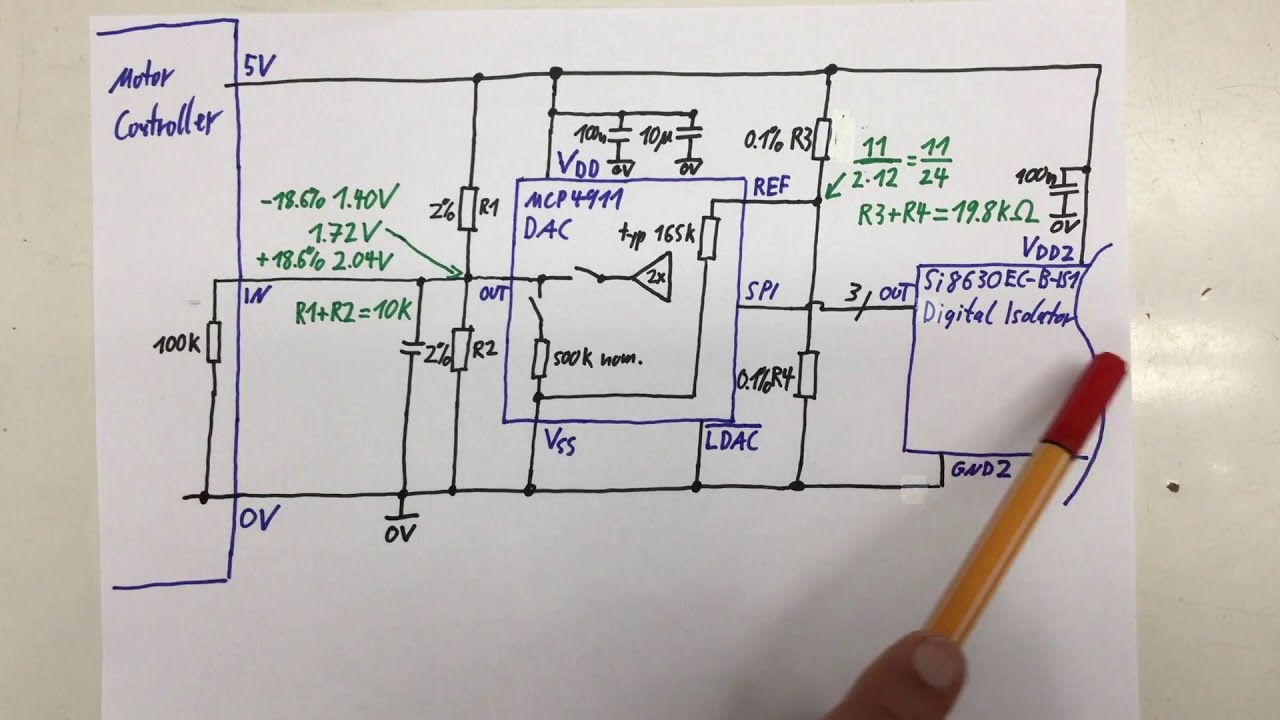 Motor
Controller
5V
100n
10µ
0V
0V
VDD
0.1% R3
11/2·12 = 11/24
R3+R4=19.8kΩ
100n
0V
VDD2
-18.6% 1.40V
1.72V
+18.6% 2.04V
2% R1
MCP4911
DAC
typ 165k
REF
2x
IN
OUT
SPI
3
OUT
Si8630EC-B-IS1
Digital Isolator
R1+R2=10K
100k
2% R2
500k nom.
0.1% R4
VSS
LDAC
GND2
0V
0V